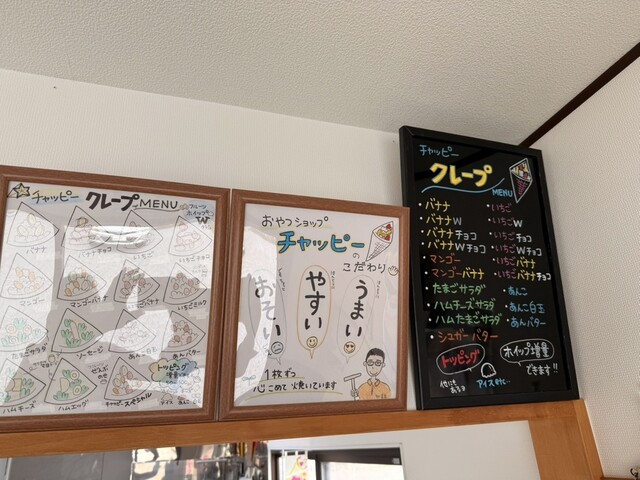 チャッピー クレープ MENU
バナナ
バナナチョコ
いちご
マンゴー
マンゴーバナナ
いちごバナナ
いちごミルク
たまごサラダ
ソーセージ
あんこ
あんバター
ハムチーズ
ハムエッグ
チャッピースペシャル
トッピング
アイス
おやつショップ
チャッピーの
こだわり
うまい
やすい
おそい
1枚ずつ
心こめて 焼いています
チャッピー
クレープ
MENU
バナナ
バナナW
バナナチョコ
バナナWチョコ
マンゴー
マンゴーバナナ
たまごサラダ
ハムチーズサラダ
ハムたまごサラダ
シュガーバター
いちご
いちごW
いちごチョコ
いちごWチョコ
いちごバナナ
いちごバナナチョコ
あんこ
あんこ白玉
あんバター
トッピング
他にもあるョ
アイスetc..
ホイップ増量
できます!!